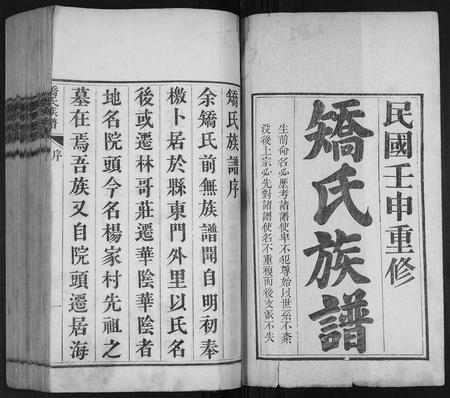 民國壬申重修
矯氏族譜
生前命名必歷考諸譜使卑不犯尊始以世系不紊
没後上宗必先對諸譜使名不重複而後支派不失
矯氏族譜序
余矯氏前無族譜聞自明初奉
檄卜居於縣東門外里以氏名
後或遷林哥莊遷華陰華陰者
地名院頭今名楊家村先祖之
墓在焉吾族又自院頭遷居海
矯氏族譜
序
一